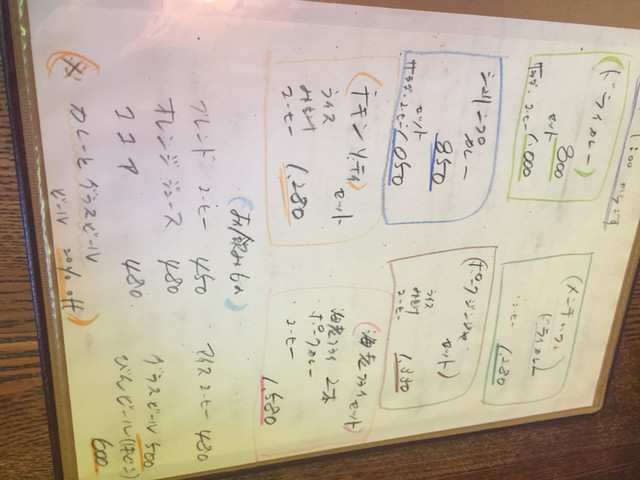 (ドライカレー)
800
セット
サラダ、コーヒー 1,000
シーフード
カレー
850
セット
サラダ、コーヒー 1,050
(チキンソティ セット
ライス
みそ汁
コーヒー 1,280
ドライカレー)
コーヒー 1,280
(ポークジンジャー
セット)
ライス
みそ汁
コーヒー
(海老フライ セット)
海老フライ 2本
ポークカレー
コーヒー
1,580
(お飲みもの)
ブレンド コーヒー 450
オレンジジュース 480
ココア 480
アイスコーヒー 480
グラスビール 500
びんビール
600
カレーとグラスビール
ビール 20% off)